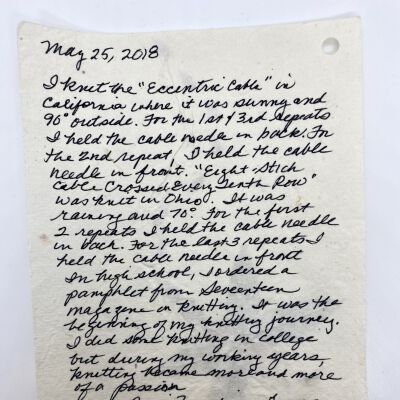 May 25, 2018
I knit the "Eccentric Cable" in
California where it was sunny and
90° outside. For the 1st & 3rd repeats
I held the cable needle in back. For
the 2nd repeat, I held the cable
needle in front. "Eight-Stich
Cable Crossed Every Tenth Row"
was knit in Ohio. It was
raining and 70°. For the first
2 repeats I held the cable needle
in back. For the last 3 repeats I
held the cable needle in front
In high school, I ordered a
pamphlet from Seventeen
magazine on knitting. It was the
beginning of my knitting journey.
I did some knitting in college
but during my working years,
knitting became more and more
of a passion